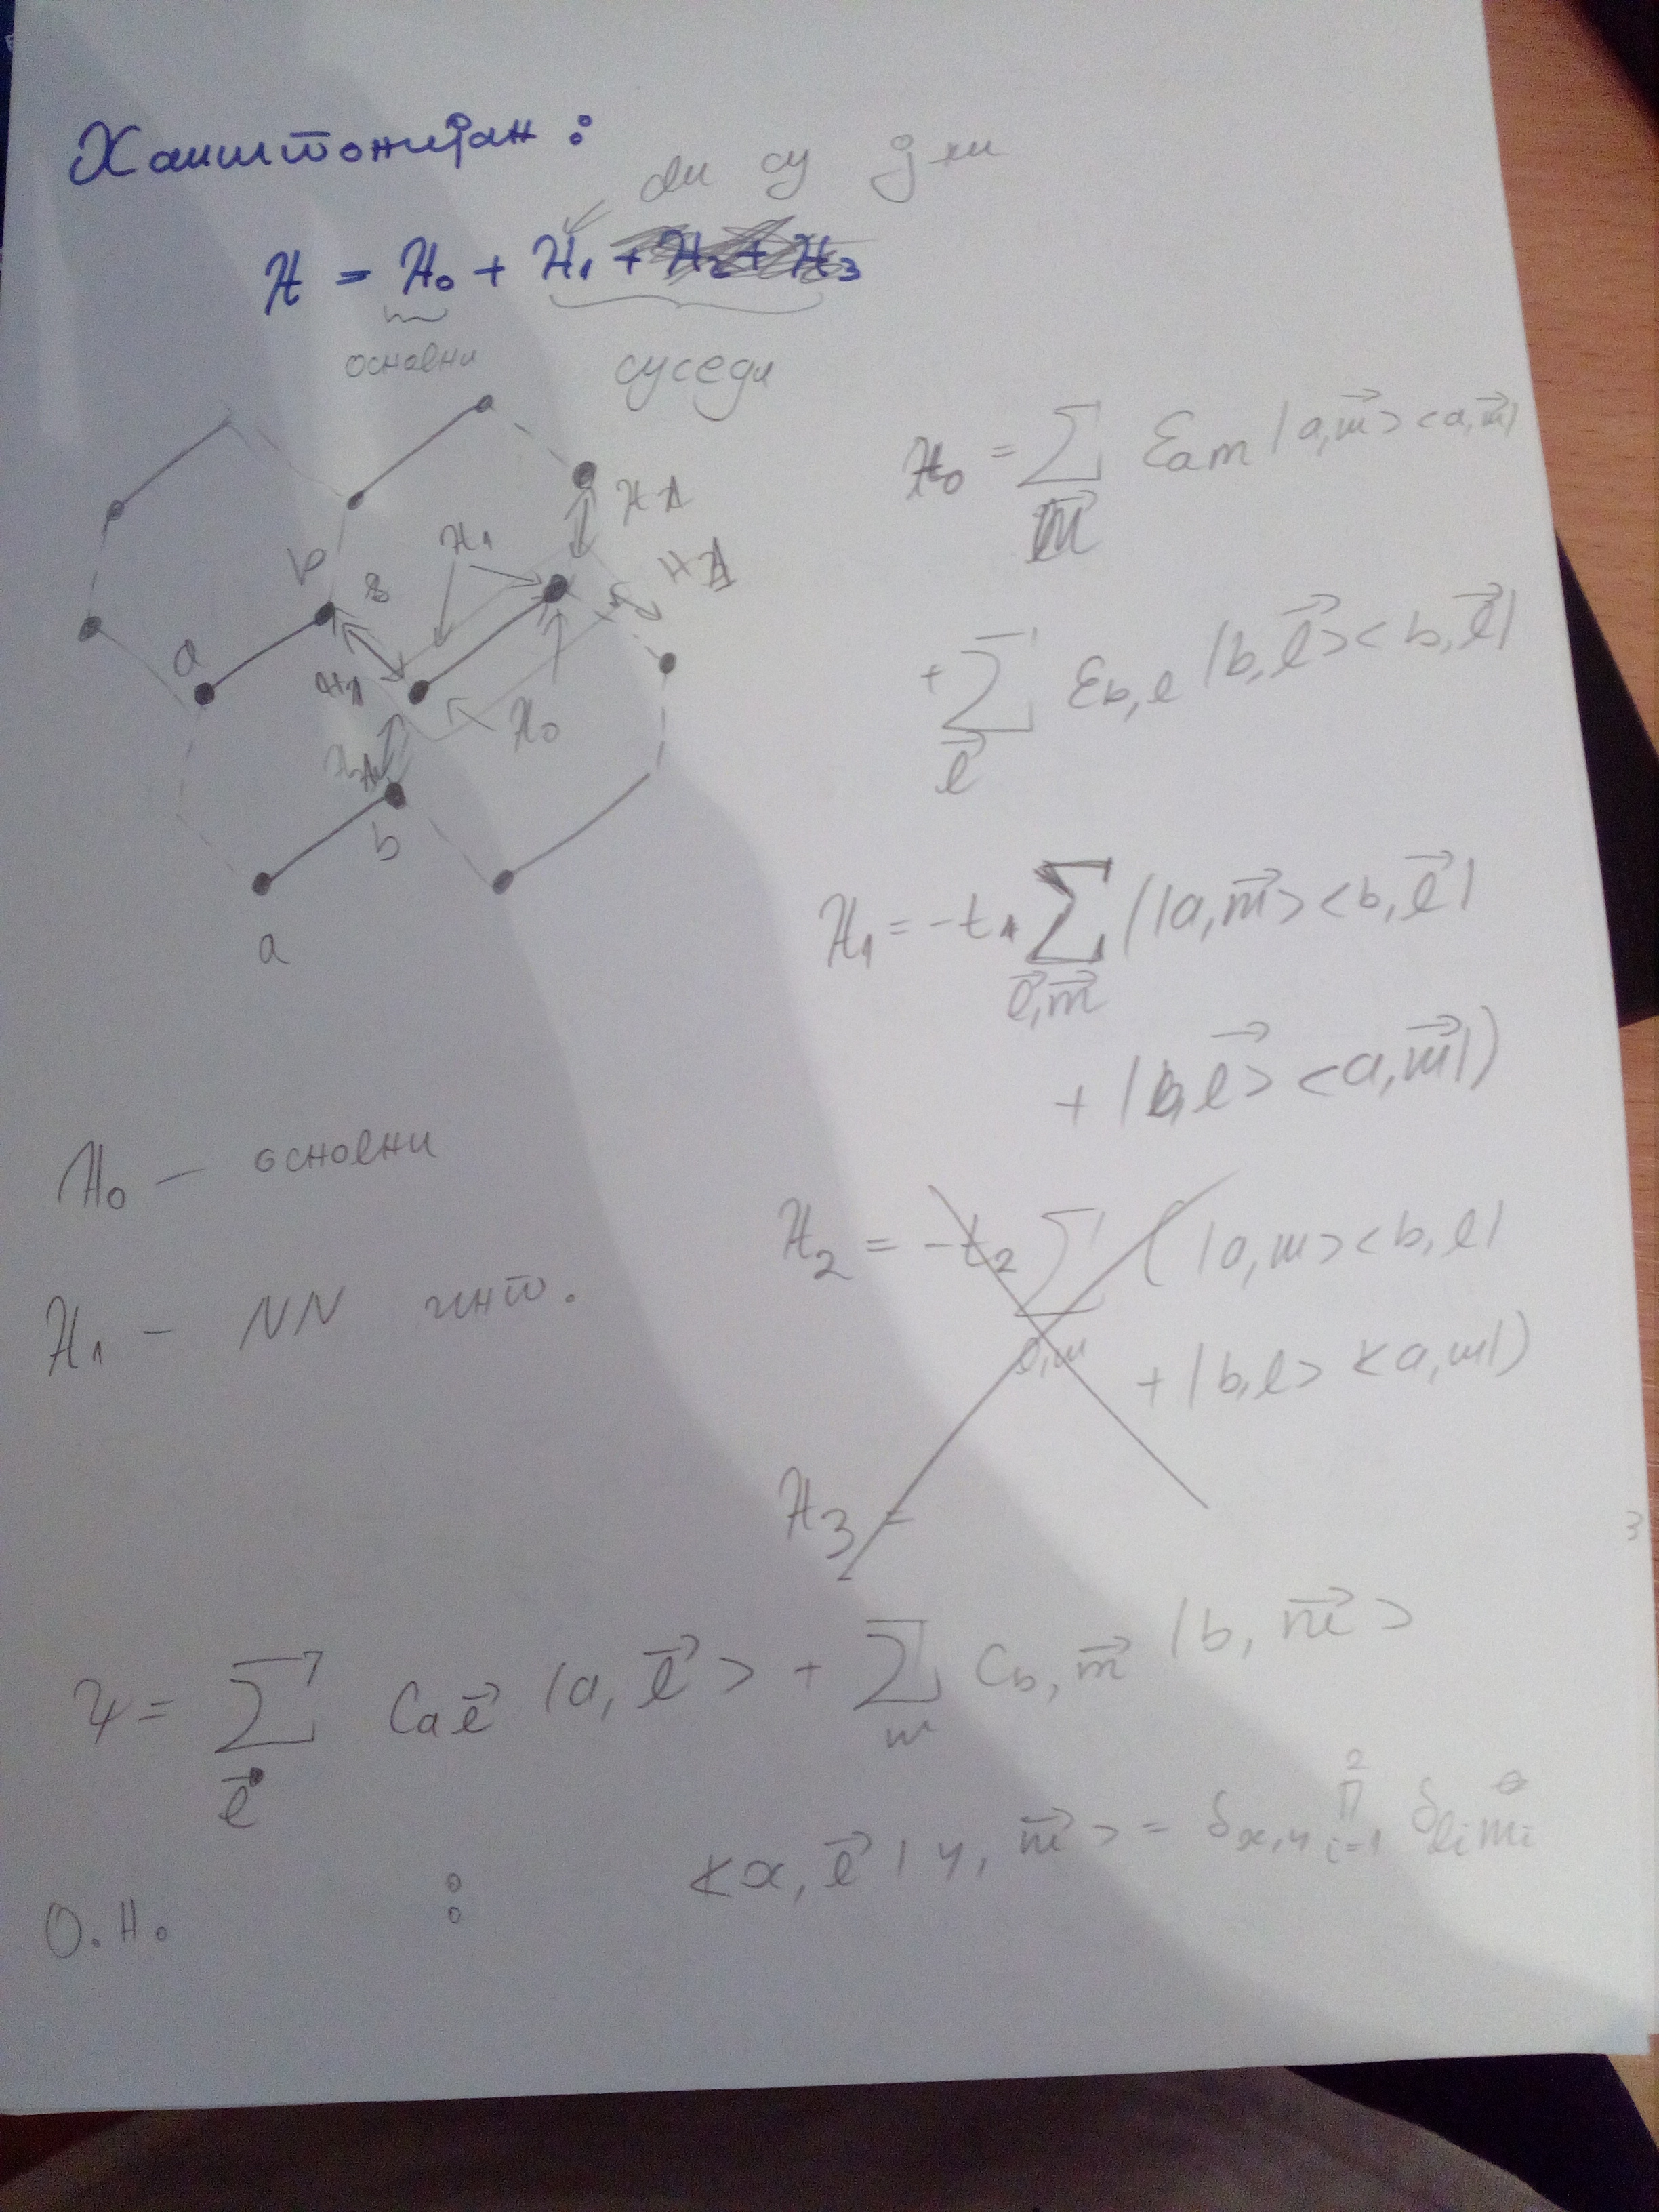 Хамилтонијан :
али су једни
H = H₀ + H₁ + H₂ + H₃
основни
суседи
H₁
H₁
H₁
b
a
H₁
H₀
b
a
H₀ = Σ_m⃗ ε_am |a,m⃗><a,m⃗|
+ Σ_l⃗ ε_b,l |b,l⃗><b,l⃗|
H₁ = -t₁ Σ_l⃗,m⃗ (|a,m⃗><b,l⃗|
+ |b,l⃗><a,m⃗|)
H₀ – основни
H₁ – NN инт.
H₂ = -t₂ Σ_l,m (|a,m><b,l|
+ |b,l><a,m|)
H₃ =
3
ψ = Σ_l⃗ C_al⃗ |a,l⃗> + Σ_m C_b,m⃗ |b,m⃗>
О.Н. : <x,l⃗|y,m⃗> = δ_x,y Π_i=1^2 δ_lᵢmᵢ